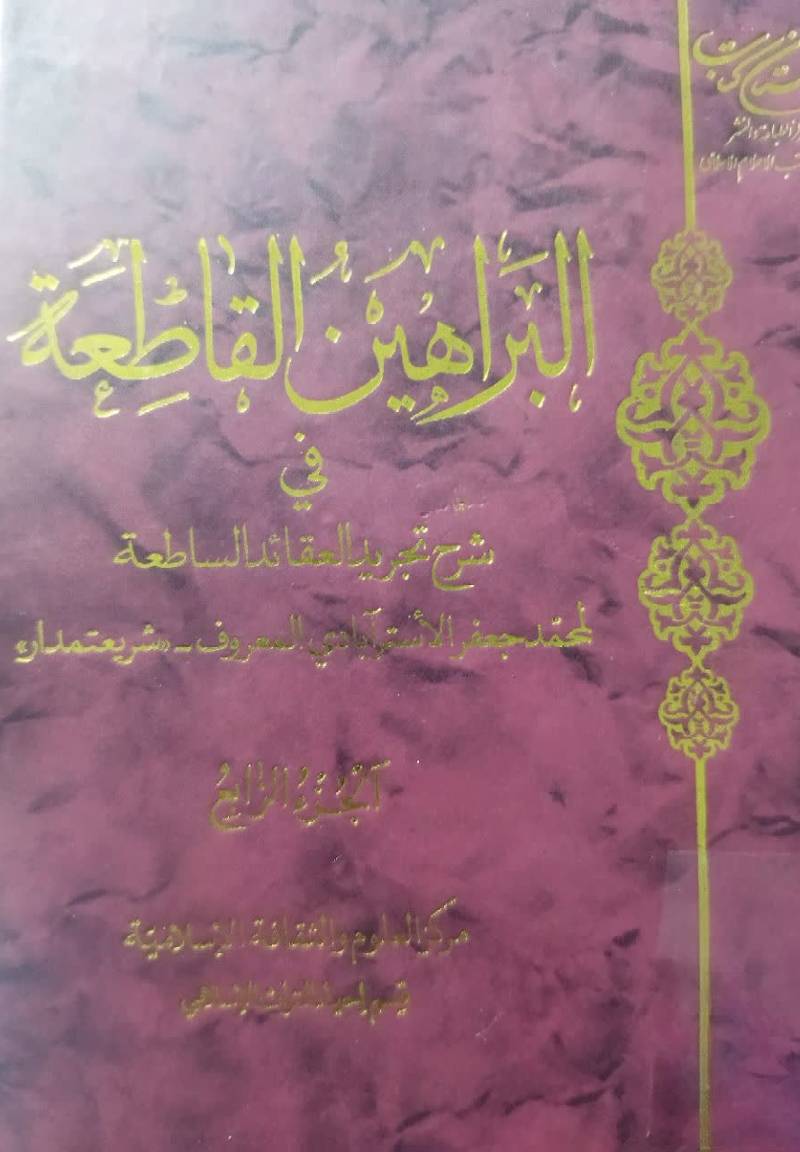 البَرَاهِينُ القَاطِعَة
في
شرح تجريد العقائد الساطعة
لمحمّد جعفر الأسترآبادي المعروف بـ «شريعتمدار»
الجُزءُ الرّابعُ
مركز العلوم والثقافة الإسلاميّة
قسم إحياء التراث الإسلامي